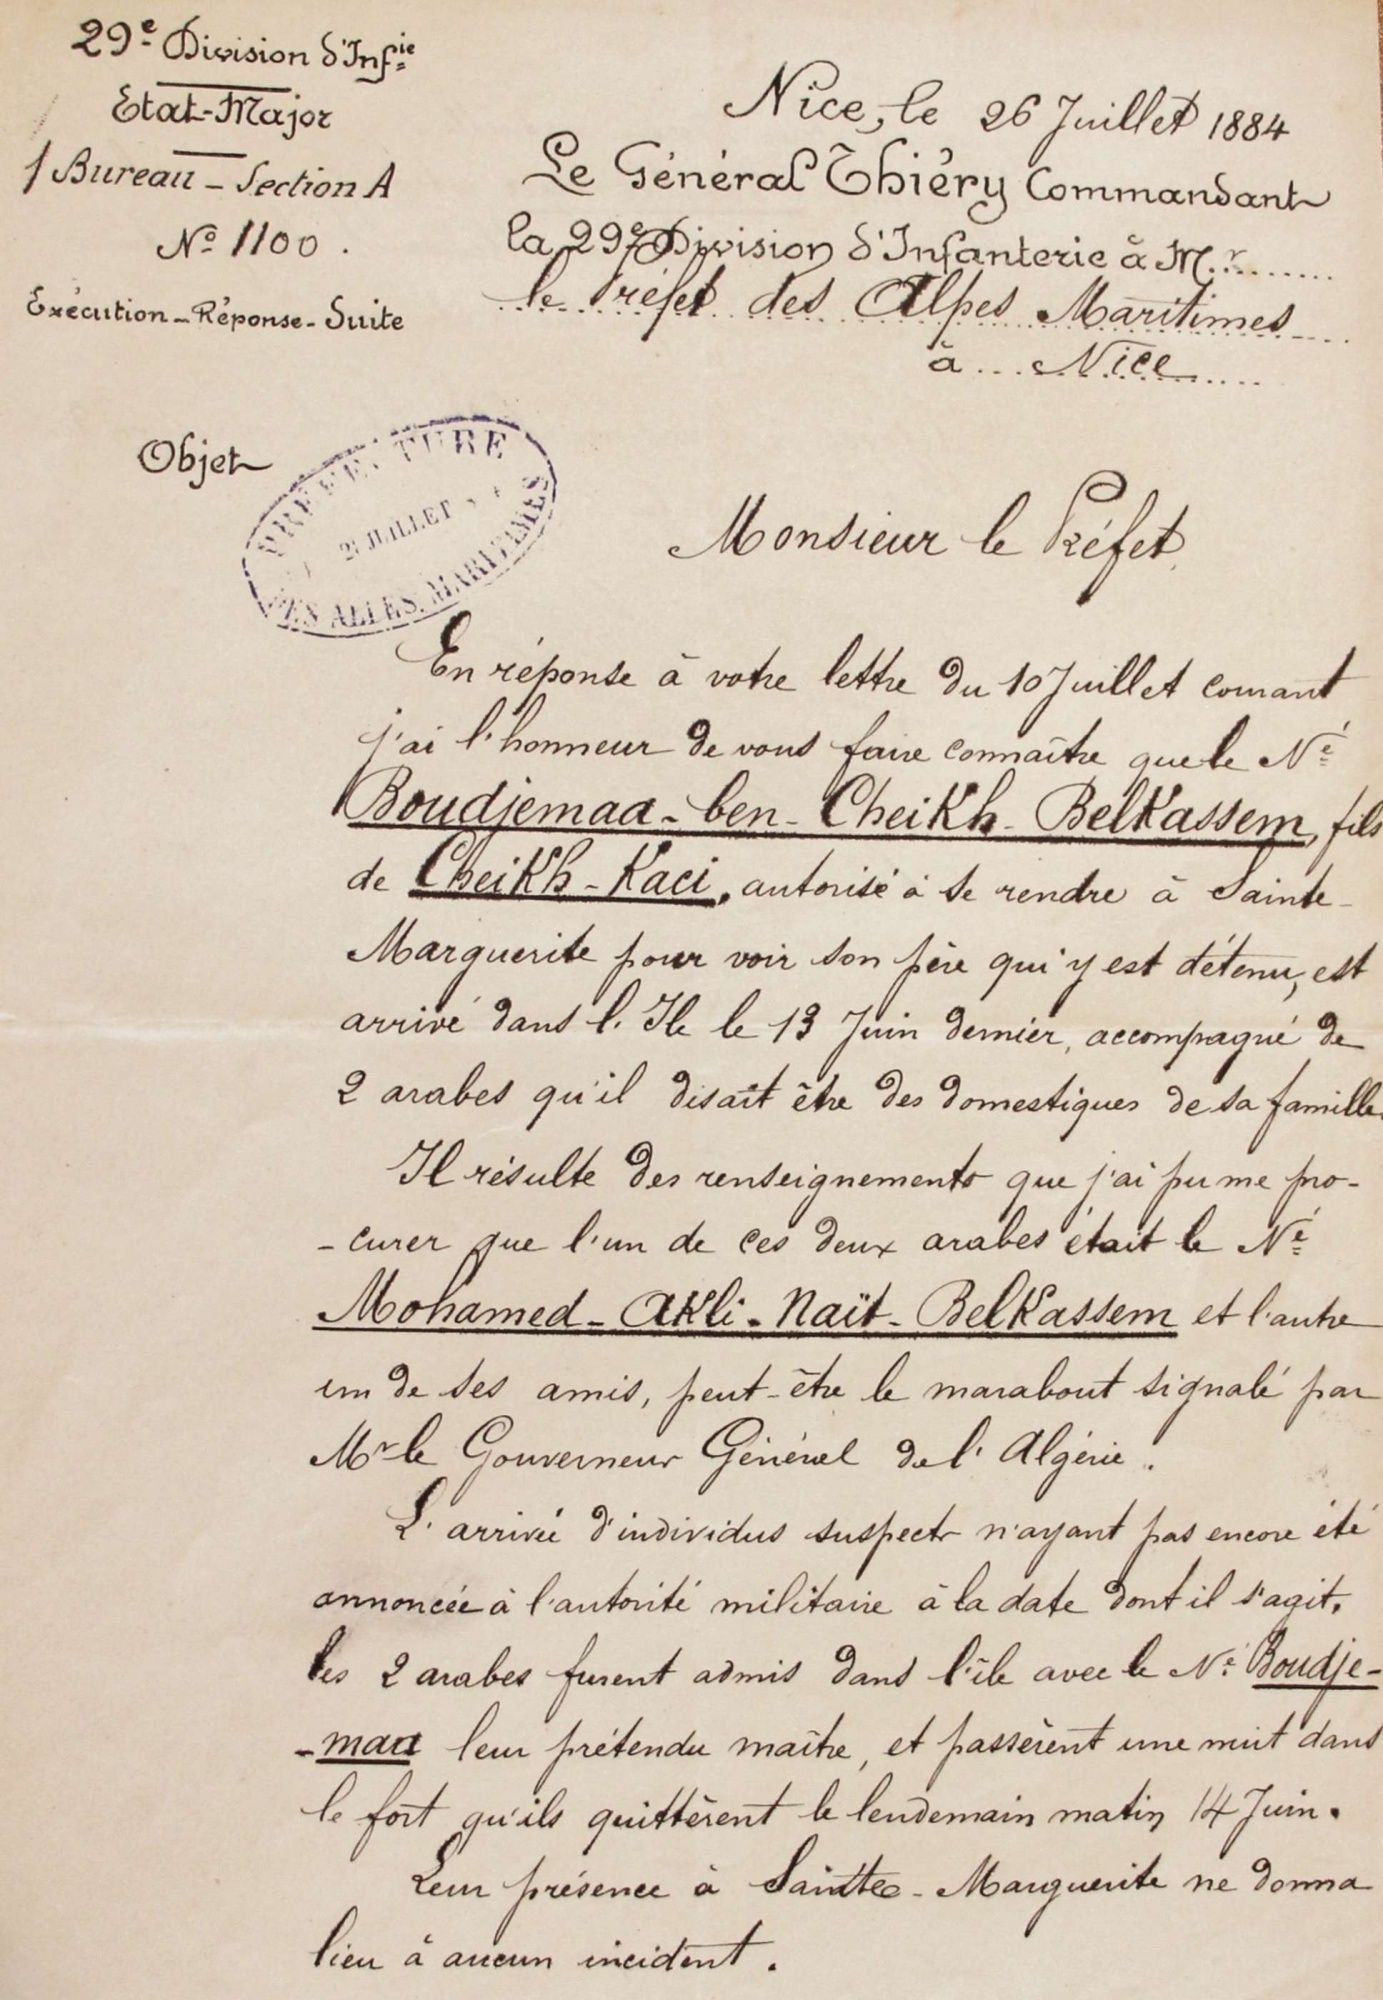 29e Division d'Infie
Etat-Major
1 Bureau - Section A
No 1100.
Exécution - Réponse - Suite
Nice, le 26 Juillet 1884
Le Général Thiéry Commandant
la 29e Division d'Infanterie à Mr
le Préfet des Alpes Maritimes
à Nice
Objet
PREFECTURE
JUILLET
DES ALPES MARITIMES
Monsieur le Préfet,
En réponse à votre lettre du 10 Juillet courant
j'ai l'honneur de vous faire connaître que le Né
Boudjemaa-ben-Cheikh-Belkassem, fils
de Cheikh-Kaci, autorisé à se rendre à Sainte-
Marguerite pour voir son père qui y est détenu, est
arrivé dans l'Ile le 13 Juin dernier, accompagné de
2 arabes qu'il disait être des domestiques de sa famille.
Il résulte des renseignements que j'ai pu me pro-
-curer que l'un de ces deux arabes était le Né
Mohamed-Akli-Naït-Belkassem et l'autre
un de ses amis, peut-être le marabout signalé par
Mr le Gouverneur Général de l'Algérie.
L'arrivée d'individus suspects n'ayant pas encore été
annoncée à l'autorité militaire à la date dont il s'agit,
les 2 arabes furent admis dans l'île avec le Né Boudje-
-maa leur prétendu maître, et passèrent une nuit dans
le fort qu'ils quittèrent le lendemain matin 14 Juin.
Leur présence à Sainte-Marguerite ne donna
lieu à aucun incident.